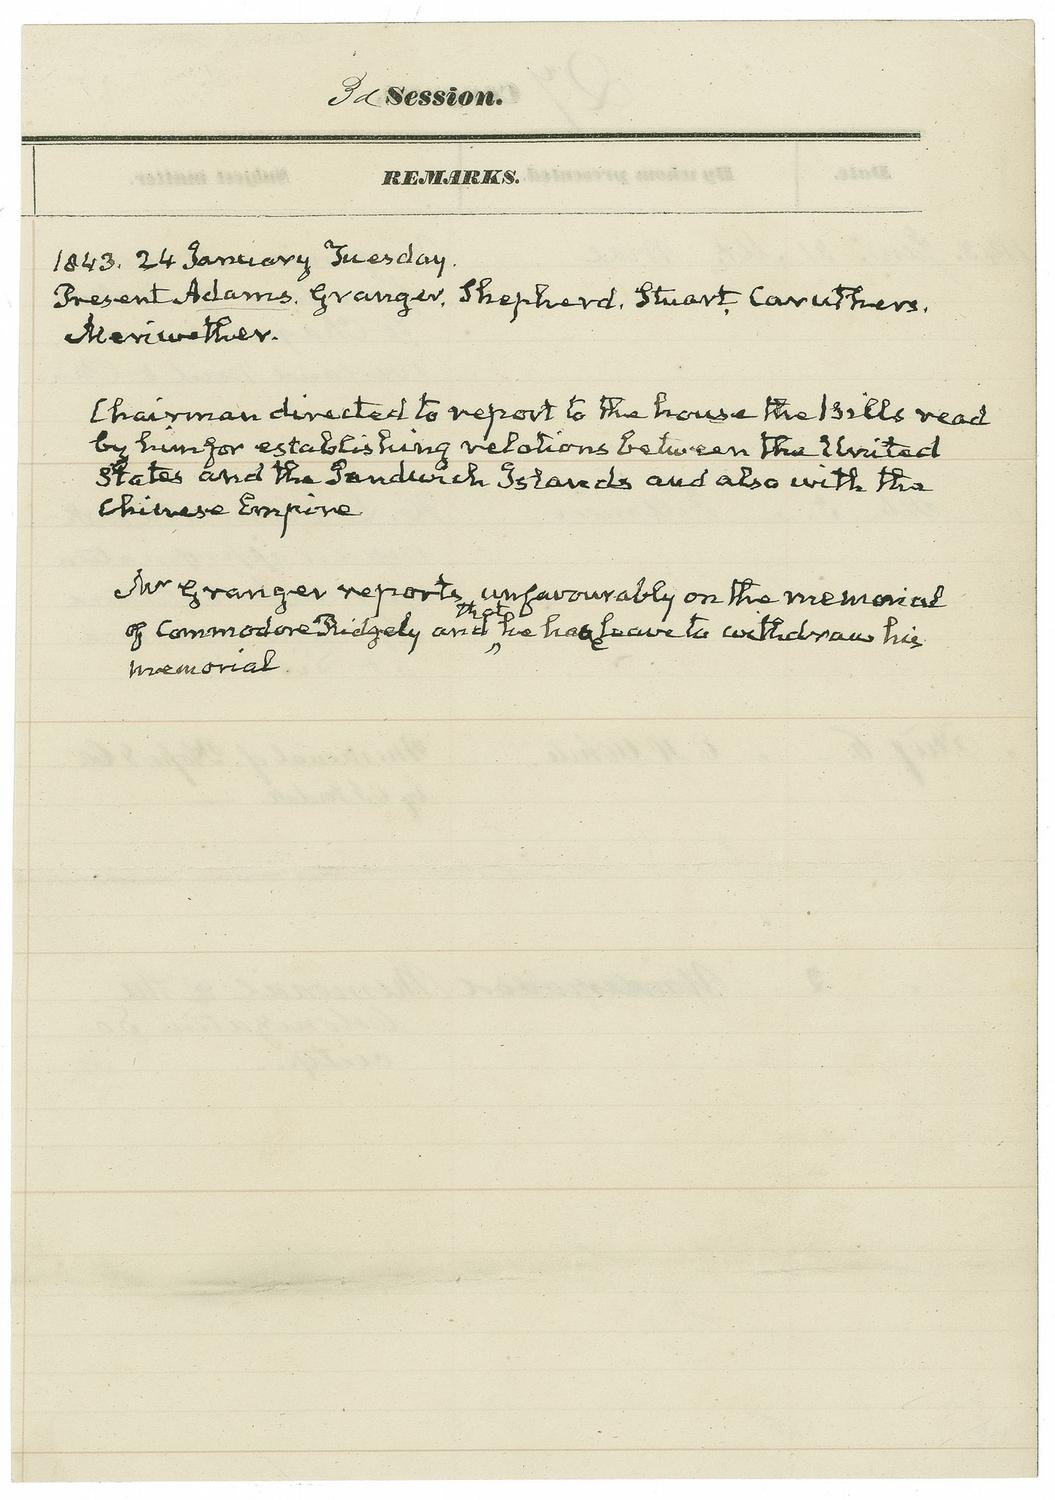 3d Session.
REMARKS.
1843. 24 January Tuesday.
Present Adams. Granger. Shepherd. Stuart. Caruthers.
Meriwether.
Chairman directed to report to the house the Bills read
by him for establishing relations between the United
States and the Sandwich Islands and also with the
Chinese Empire
Mr Granger reports unfavourably on the memorial
of Commodore Ridgely and that he have leave to withdraw his
memorial